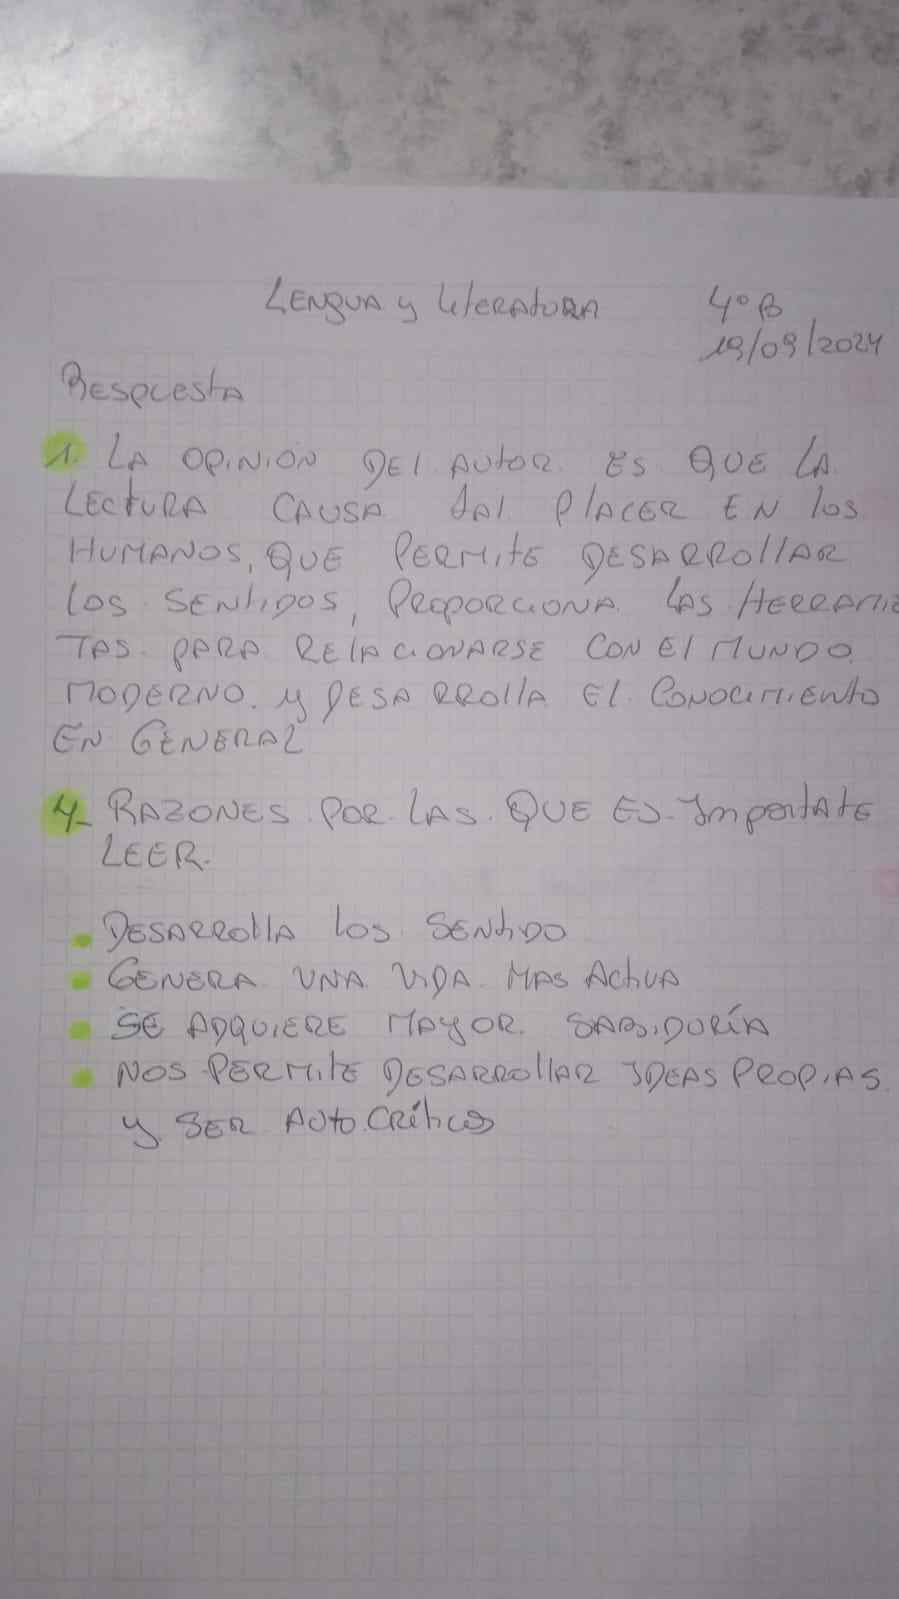 LENGUA y LiteRATURA 4º B
19/09/2024
Respuesta
1. LA OPINIÓN DEL AUTOR ES QUE LA
LECTURA CAUSA tAl PlACER EN los
HUMANOS, QUE PERMITE DESARROllAR
LOS SENtIDOS, PROPORCIONA LAS HERRAMIE
TAS PARA RELACIONARSE CON El MUNDO
MODERNO y DESARROllA EL CONOCIMIENTO
EN GENERAL
4- RAZONES POR LAS QUE ES ImpoRtAtE
LEER.
• DESARROllA los SENtIDO
• GENERA UNA VIDA MAS ActIVA
• SE ADQUIERE MAYOR SABIDURÍA
• NOS PERMITE DESARROllAR IDEAS PROPIAS
y SER AUTO CRÍticos